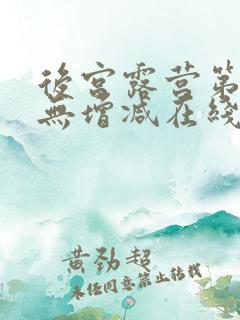 後宮露营第
無增减在綫
黄劲超
未经同意禁止转载